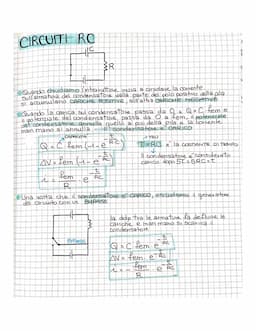 CIRCUITI RC
C
R
Quando chiudiamo l'interruttore, inizia a circolare la corrente
sull'armatura del condensatore dalla parte del polo positivo della pila
si accumulano CARICHE POSITIVE, sull'altra CARICHE NEGATIVE
Quando la carica sul condensatore passa da 0 a Q = C · fem e
il potenziale del condensatore passa da 0 a fem, il potenziale
del condensatore annulla quello ai poli della pila e la corrente
man mano si annulla IL CONDENSATORE È CARICO
Q = C fem (1 - e^(-t/RC))
ΔV = fem (1 - e^(-t/RC))
i = fem/R e^(-t/RC)
τ = RC è la COSTANTE DI TEMPO
Il condensatore è considerato
carico dopo 5τ = 5RC = t
Una volta che il condensatore è CARICO, escludiamo il generatore
dal circuito con un BYPASS
BYPASS
la ddp tra le armature fa defluire le
cariche e man mano si scarica il
condensatore
Q = C fem e^(-t/RC)
ΔV = fem e^(-t/RC)
i = - fem/R e^(-t/RC)